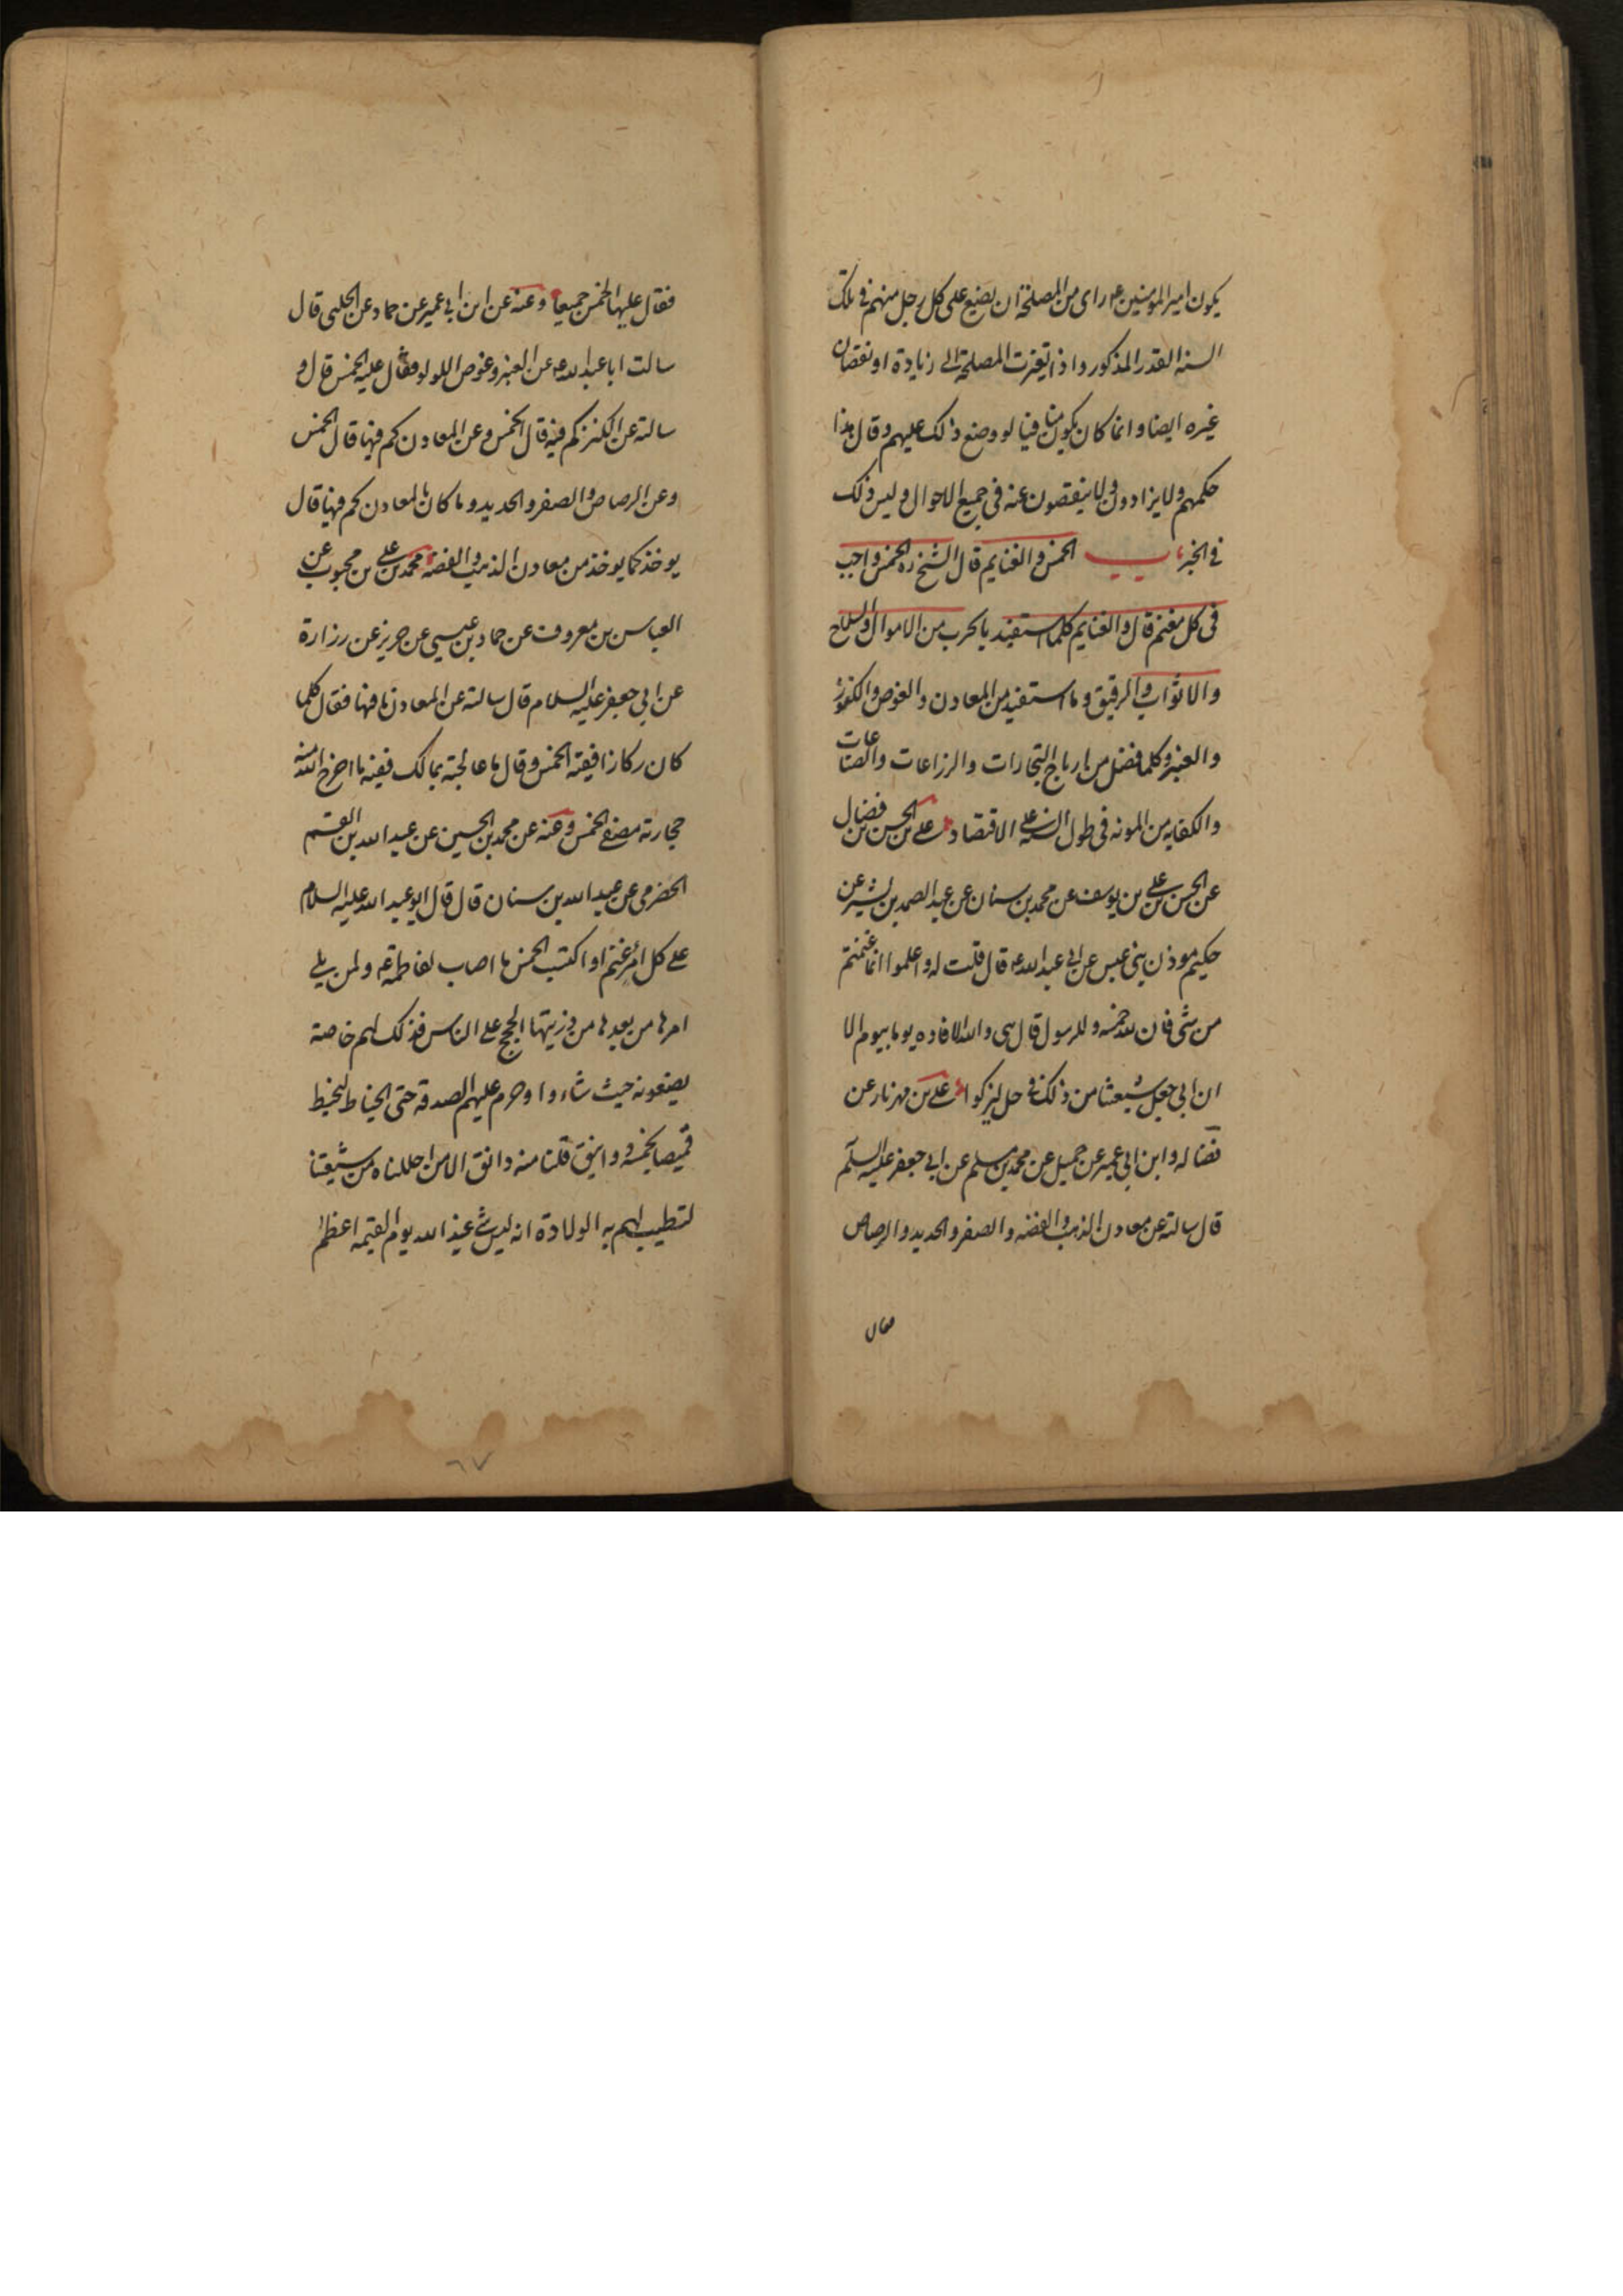 يكون امير المؤمنين ع راى من المصلحة ان يضع على كل رجل منهم في تلك
السنه القدر المذكور واذا تغيرت المصلحة الى زيادة او نقصان
غيره ايضا وانما كان يكون منافيا لو وضع ذلك عليهم وقال هذا
حكمهم ولا يزادون ولا ينقصون عنه في جميع الاحوال وليس ذلك
في الخبر باب الخمس والغنايم قال الشيخ ره الخمس واجب
في كل مغنم قال والغنايم كلما استفيد بالحرب من الاموال والسلاح
والاثواب والرقيق وما استفيد من المعادن والغوص والكنوز
والعنبر وكلما فضل من ارباح التجارات والزراعات والصناعات
والكفايه من المونه في طول السنه على الاقتصاد على بن الحسن بن فضال
عن الحسن بن على بن يوسف عن محمد بن سنان عن عبد الصمد بن بشير عن
حكيم موذن بنى عبس عن ابى عبد الله ع قال قلت له واعلموا انما غنمتم
من شى فان لله خمسه وللرسول قال هى والله الافاده يوما بيوم الا
ان ابى جعل شيعتنا من ذلك في حل ليزكوا على بن مهزيار عن
فضاله وابن ابى عمير عن جميل عن محمد بن مسلم عن ابى جعفر عليه السلم
قال سالته عن معادن الذهب والفضه والصفر والحديد والرصاص
فقال
فقال عليها الخمس جميعا وعنه عن ابن ابى عمير عن حماد عن الحلبى قال
سالت ابا عبد الله ع عن العنبر وغوص اللولو فقال عليه الخمس قال و
سالته عن الكنز كم فيه قال الخمس وعن المعادن كم فيها قال الخمس
وعن الرصاص والصفر والحديد وما كان بالمعادن كم فيها قال
يوخذ كما يوخذ من معادن الذهب والفضه محمد بن على بن محبوب عن
العباس بن معروف عن حماد بن عيسى عن حريز عن زرارة
عن ابى جعفر عليه السلام قال سالته عن المعادن ما فيها فقال كلما
كان ركازا ففيه الخمس وقال ما عالجته بمالك ففيه ما اخرج الله منه
حجارته مصفى الخمس وعنه عن محمد بن الحسين عن عبد الله بن القسم
الحضرمى عن عبد الله بن سنان قال قال ابو عبد الله عليه السلام
على كل امرء غنم او اكتسب الخمس ما اصاب لفاطمة ع ولمن يلى
امرها من بعدها من ذريتها الحجج على الناس فذلك لهم خاصة
يضعونه حيث شاءوا وحرم عليهم الصدقه حتى الخياط ليخيط
قميصا بخمسة دوانيق فلنا منه دانق الا من احللناه من شيعتنا
لتطيب لهم به الولادة انه ليس شى عند الله يوم القيمه اعظم
٦٧